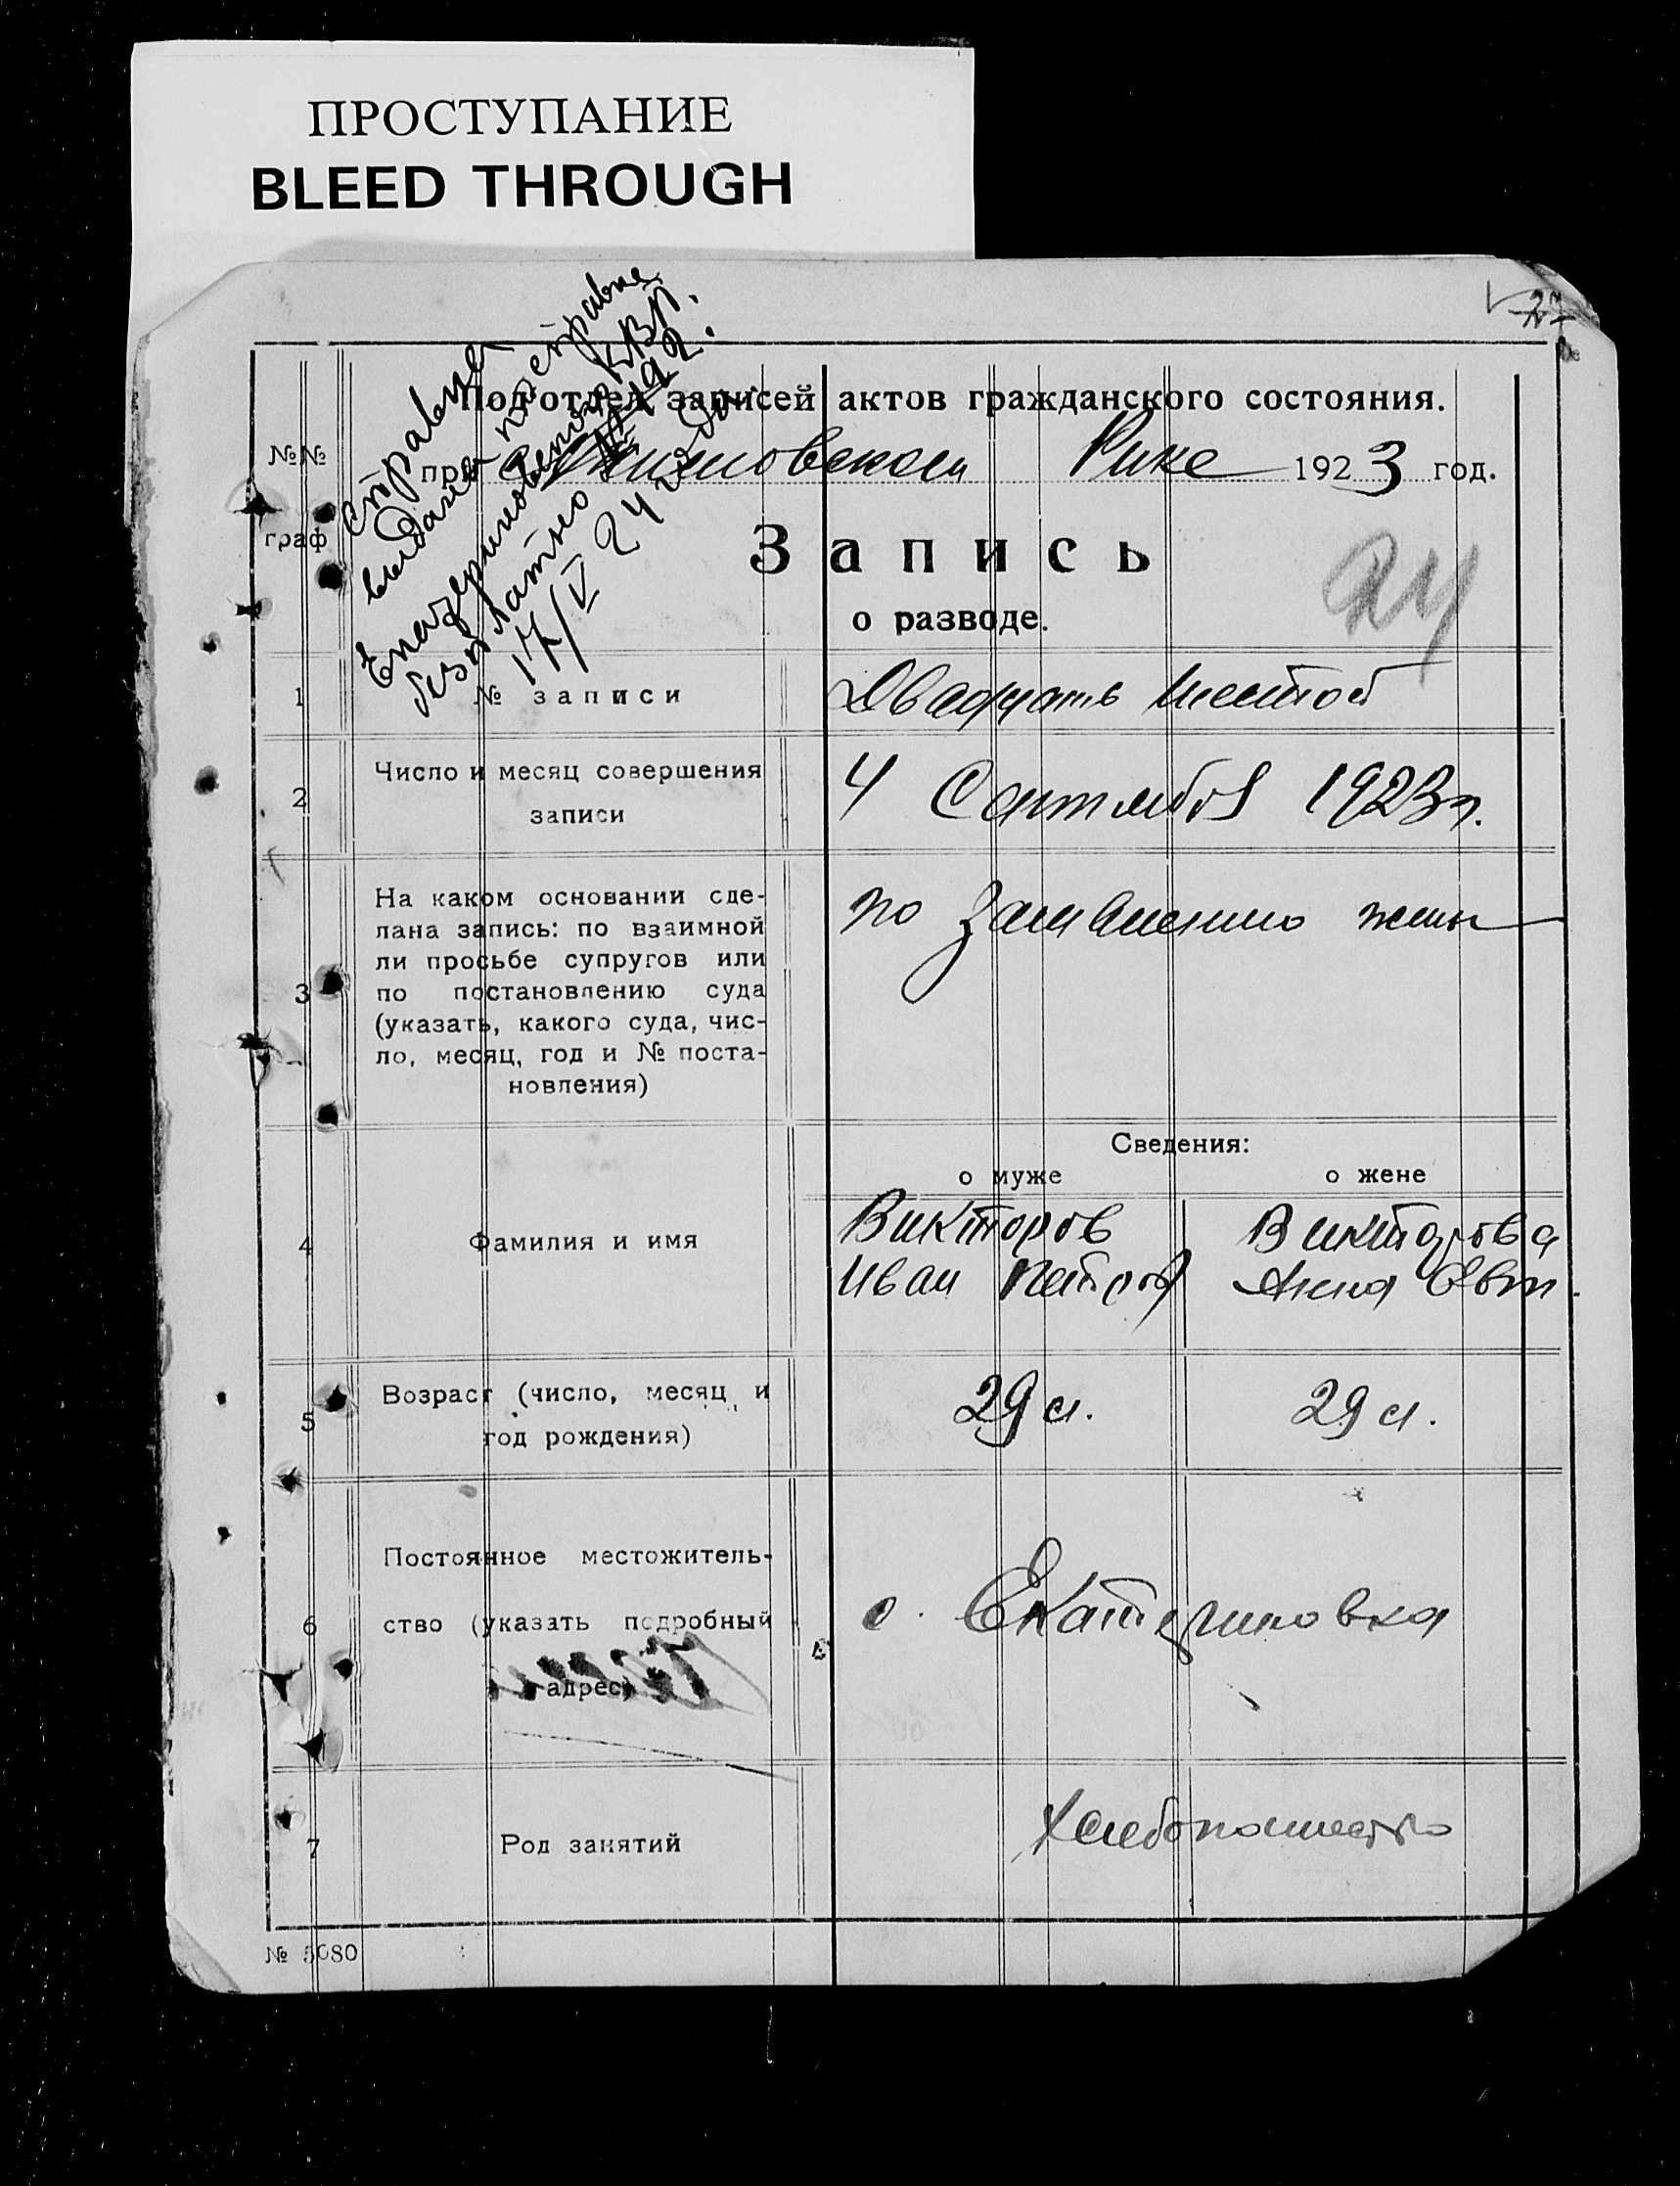 ПРОСТУПАНИЕ
BLEED THROUGH
27
справка
выдана по справке
Екатериновского КВП.
безплатно
17/V 24 года
Подотдел записей актов гражданского состояния.
№№
граф
при Рике 1923 год.
Запись
о разводе.
24
1 № записи Двадцать шестой
2 Число и месяц совершения
записи
4 Сентября 1923 г.
3 На каком основании сде-
лана запись: по взаимной
ли просьбе супругов или
по постановлению суда
(указать, какого суда, чис-
ло, месяц, год и № поста-
новления)
по заявлению жены
Сведения:
о муже о жене
4 Фамилия и имя
Викторов Викторова
Иван Петров Анна Евт.
5 Возраст (число, месяц и
год рождения)
29 л. 29 л.
6 Постоянное местожитель-
ство (указать подробный
адрес)
с. Екатериновка
7 Род занятий Хлебопашество
№ 5080